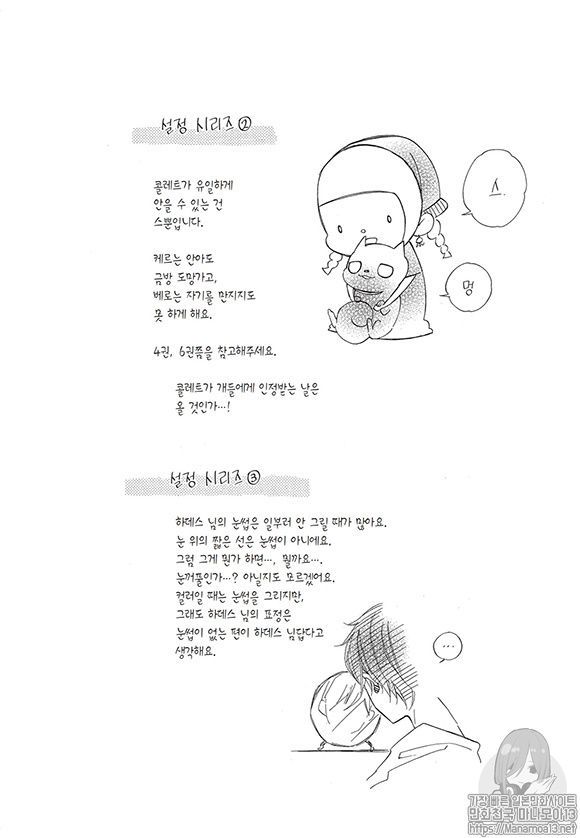 설정 시리즈②
콜레트가 유일하게
안을 수 있는 건
스뿐입니다.
스
케르는 안아도
금방 도망가고,
베로는 자기를 만지지도
못 하게 해요.
멍
4권, 6권쯤을 참고해주세요.
콜레트가 개들에게 인정받는 날은
올 것인가…!
설정 시리즈③
하데스 님의 눈썹은 일부러 안 그릴 때가 많아요.
눈 위의 짧은 선은 눈썹이 아니에요.
그럼 그게 뭔가 하면…, 뭘까요….
눈꺼풀인가…? 아닐지도 모르겠어요.
컬러일 때는 눈썹을 그리지만,
그래도 하데스 님의 표정은
눈썹이 없는 편이 하데스 님답다고
생각해요.
…
가장빠른일본만화사이트
만화천국 마나모아13
https://Manamoa13.net